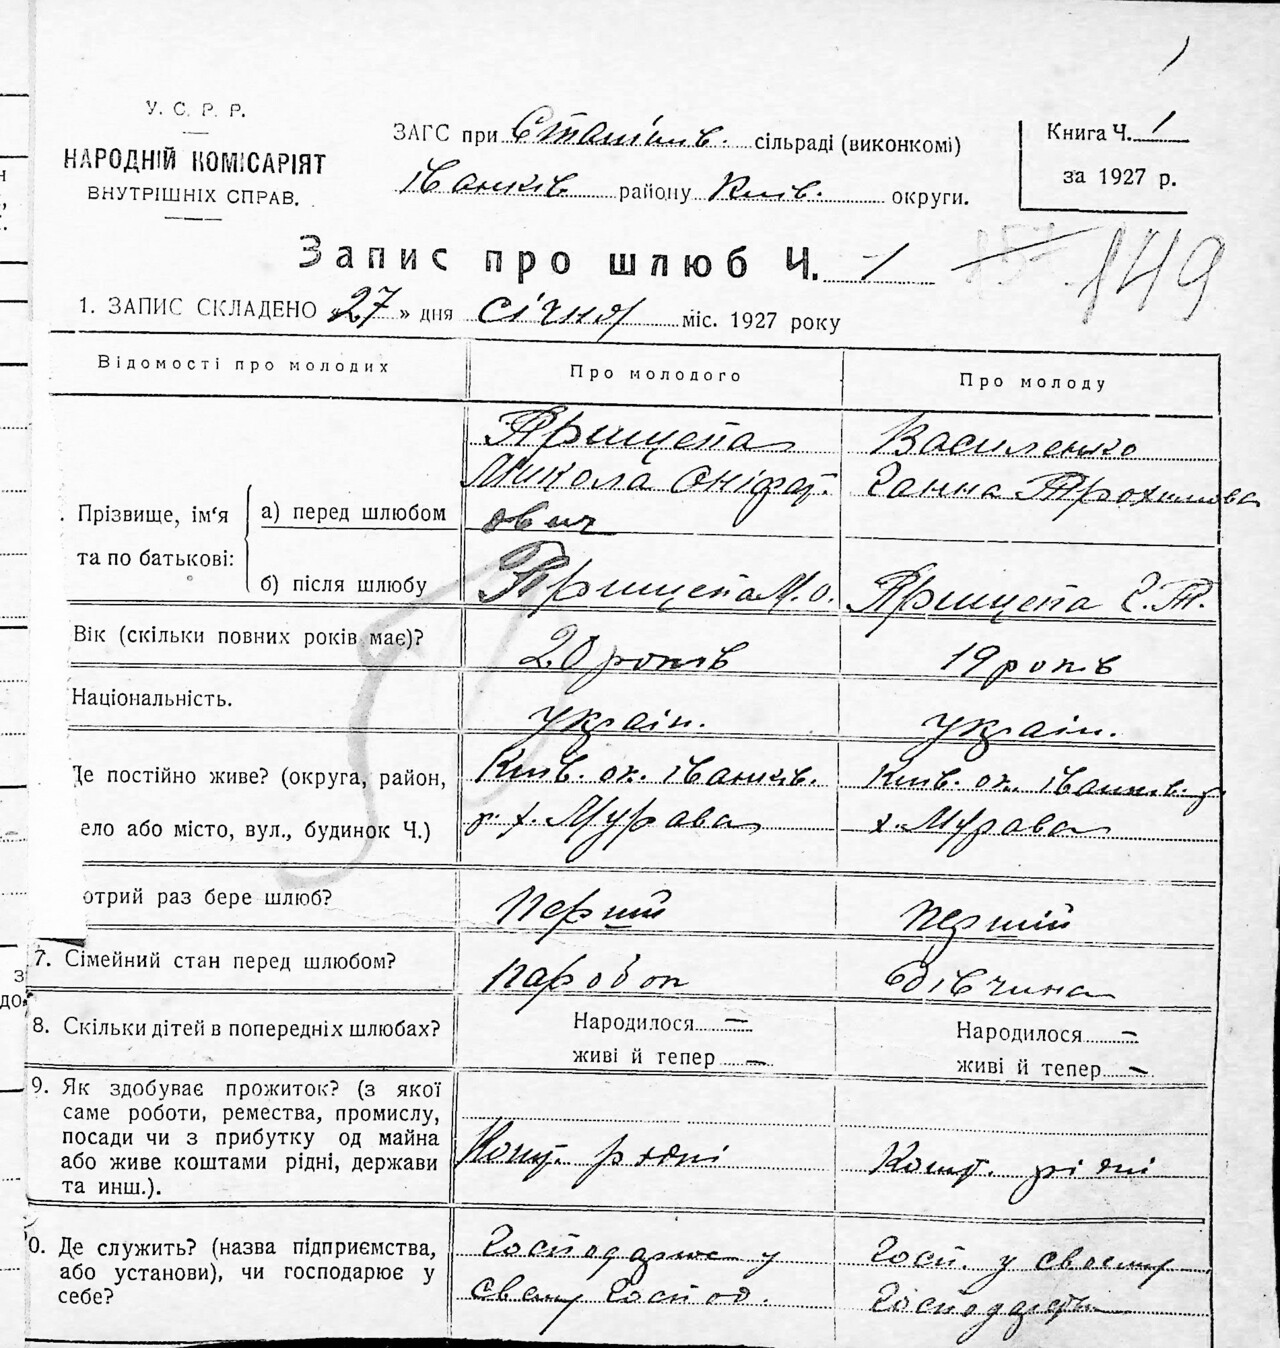 У. С. Р. Р.
НАРОДНІЙ КОМІСАРІЯТ
ВНУТРІШНІХ СПРАВ.
ЗАГС при сільраді (виконкомі)
Іванків району Київ. округи.
Книга Ч. 1
за 1927 р.
Запис про шлюб Ч. 1
149
1. ЗАПИС СКЛАДЕНО «27» дня січня міс. 1927 року
Відомості про молодих
Про молодого
Про молоду
Прізвище, ім'я та по батькові:
а) перед шлюбом
Прищепа
Микола Оніфат.
ович
Василенко
Ганна Трохимова
б) після шлюбу
Прищепа М. О.
Прищепа Г. Т.
Вік (скільки повних років має)?
20 років
19 років
Національність.
україн.
україн.
Де постійно живе? (округа, район,
ело або місто, вул., будинок Ч.)
Київ. ок. Іванків.
р. х. Мурава
Київ. ок. Іванків. р.
х. Мурава
отрий раз бере шлюб?
Перший
перший
7. Сімейний стан перед шлюбом?
паробок
дівчина
8. Скільки дітей в попередніх шлюбах?
Народилося —
живі й тепер —
Народилося —
живі й тепер —
9. Як здобуває прожиток? (з якої
саме роботи, ремества, промислу,
посади чи з прибутку од майна
або живе коштами рідні, держави
та инш.).
Кошт. рідні
Кошт. рідні
0. Де служить? (назва підприємства,
або установи), чи господарює у
себе?
Господарює у
свему Господ.
Госп. у своему